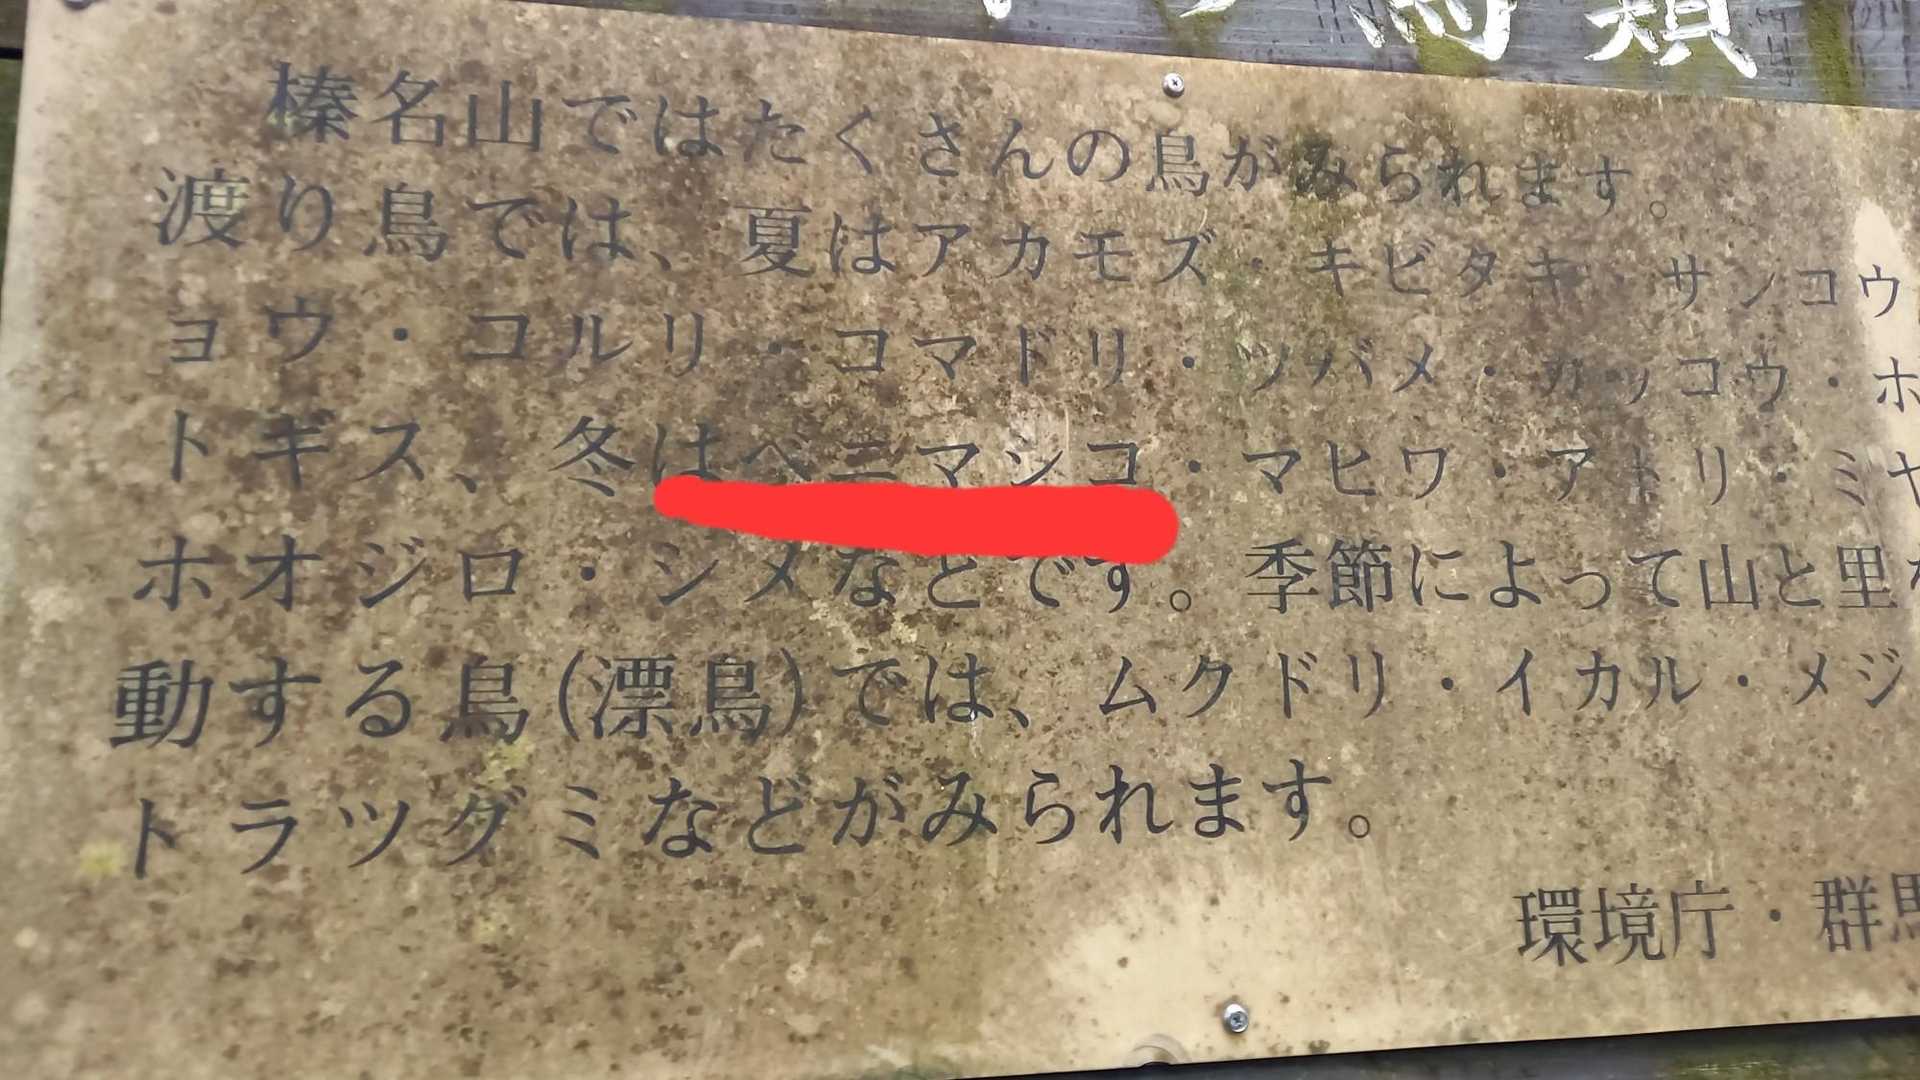 鳥類
榛名山ではたくさんの鳥がみられます。
渡り鳥では、夏はアカモズ・キビタキ・サンコウ
ョウ・コルリ・コマドリ・ツバメ・カッコウ・ホ
トギス、冬はベニマシコ・マヒワ・アトリ・ミヤ
ホオジロ・シメなどです。季節によって山と里
動する鳥(漂鳥)では、ムクドリ・イカル・メジ
トラツグミなどがみられます。
環境庁・群馬